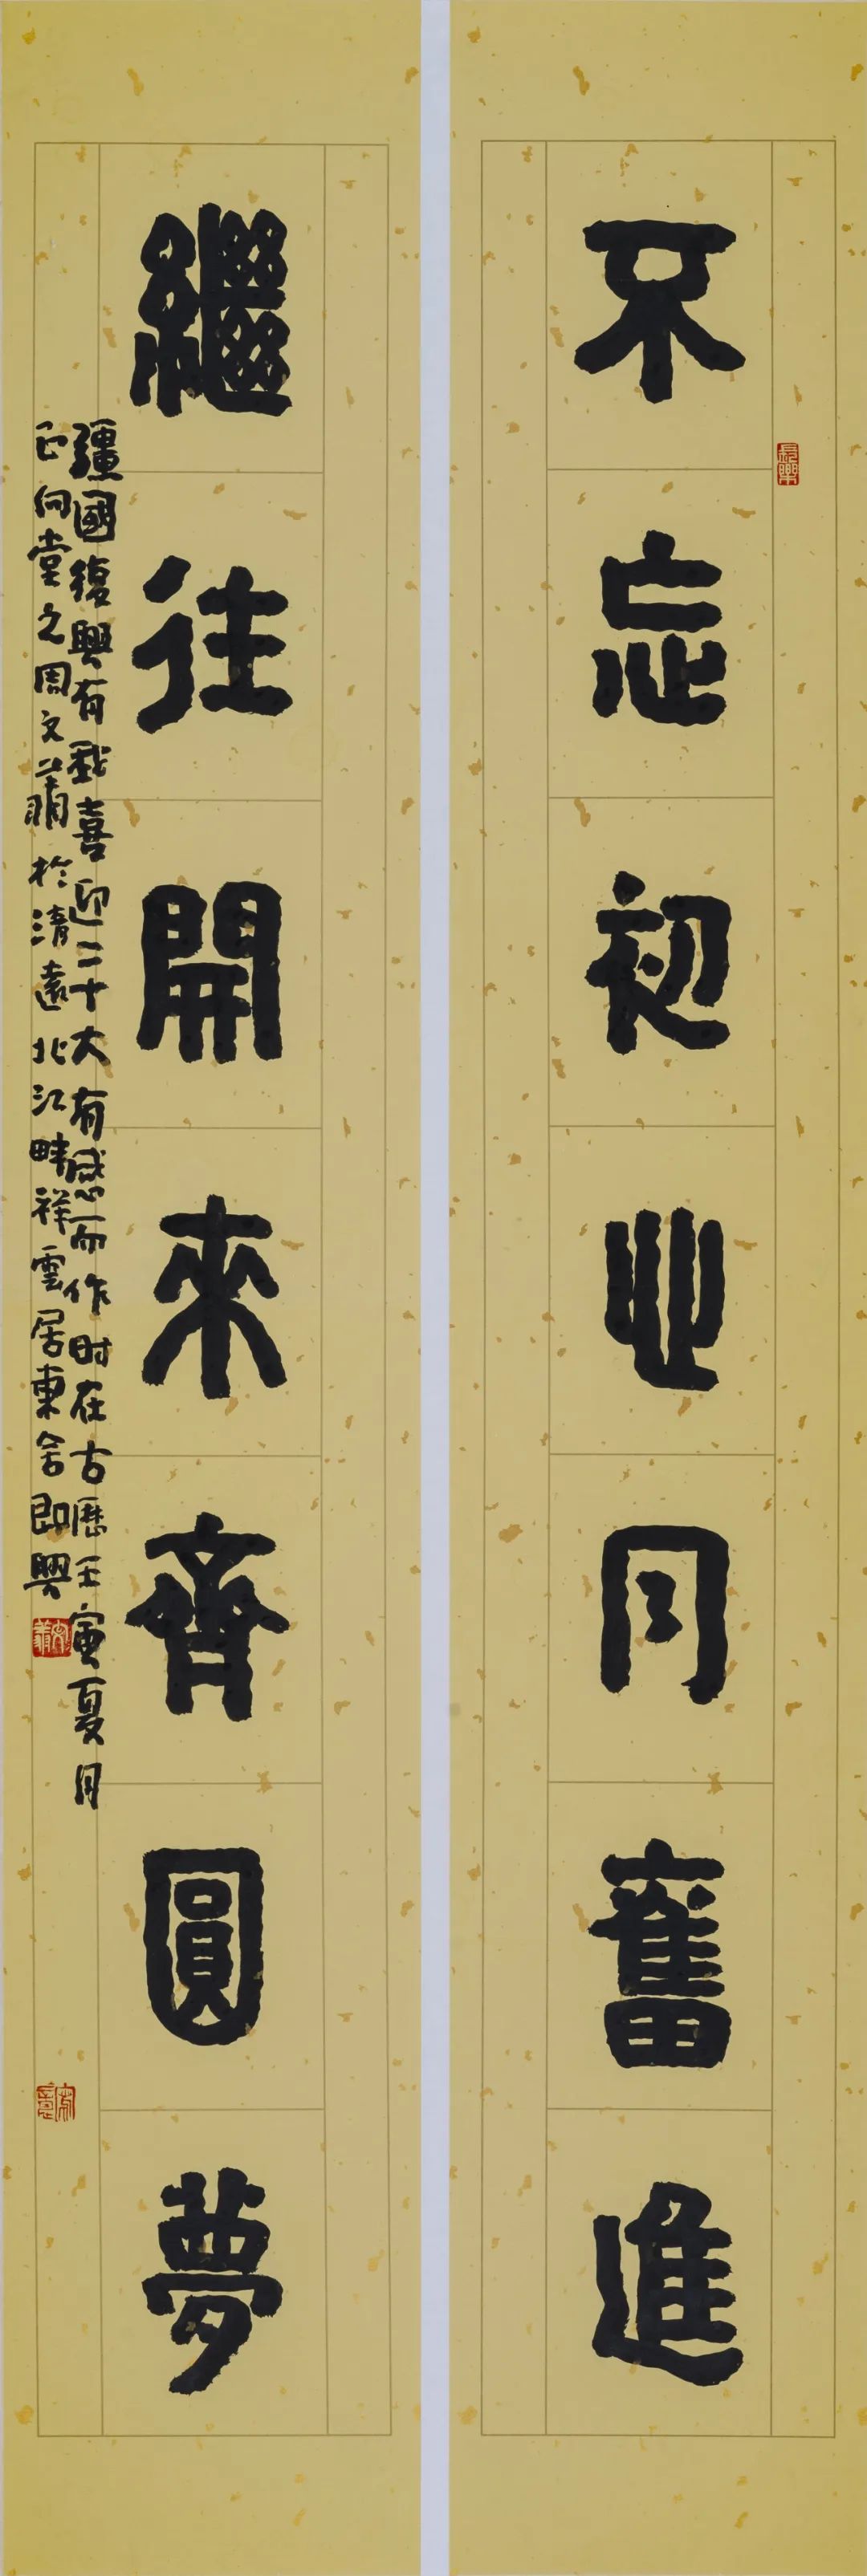 不忘初心同奮進
繼往開來齊圓夢
彊國復興有我喜迎二十大有感而作时在古歷壬寅夏月
正向堂之周文蕭於清遠北江畔祥雲居東舍即興
長樂